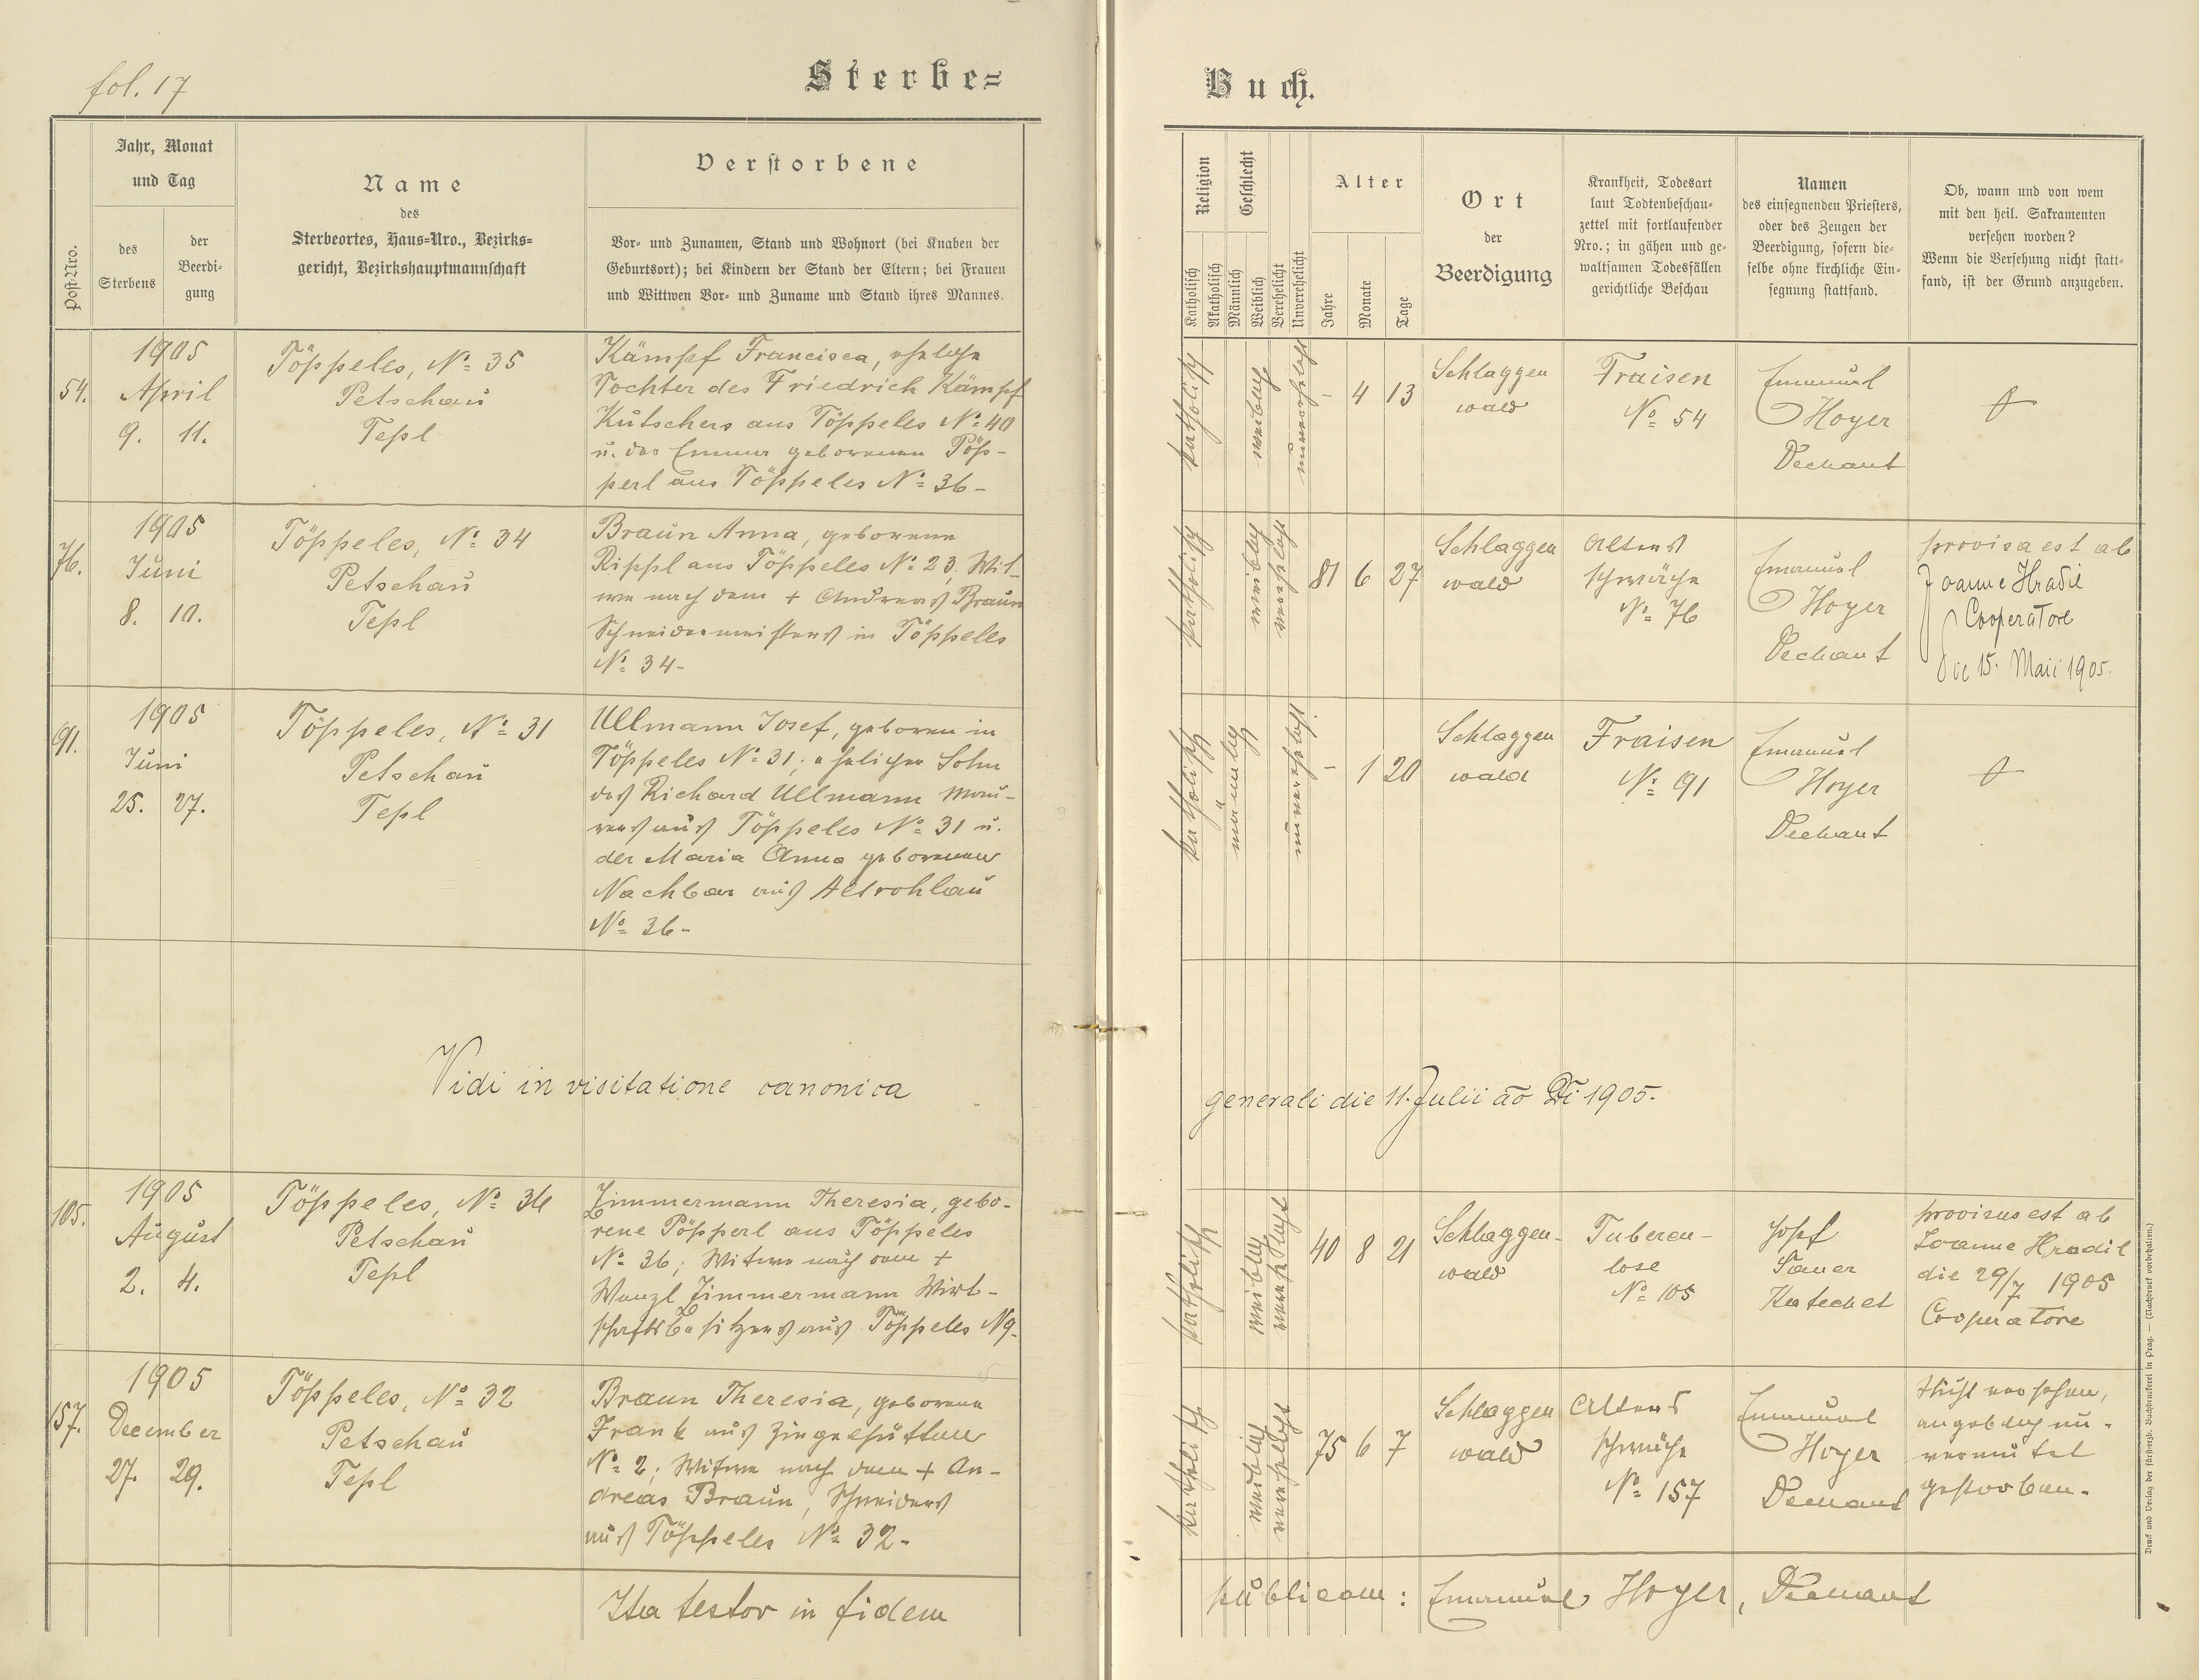 fol. 17
Sterbe=
Buch.
Post-Nro.
Jahr, Monat
und Tag
des
Sterbens
der
Beerdi-
gung
Name
des
Sterbeortes, Haus=Nro., Bezirks=
gericht, Bezirkshauptmannschaft
Verstorbene
Vor- und Zunamen, Stand und Wohnort (bei Knaben der
Geburtsort); bei Kindern der Stand der Eltern; bei Frauen
und Wittwen Vor- und Zuname und Stand ihres Mannes.
Religion
Katholisch
Akatholisch
Geschlecht
Männlich
Weiblich
Verehelicht
Unverehelicht
Alter
Jahre
Monate
Tage
Ort
der
Beerdigung
Krankheit, Todesart
laut Todtenbeschau-
zettel mit fortlaufender
Nro.; in gähen und ge-
waltsamen Todesfällen
gerichtliche Beschau
Namen
des einsegnenden Priesters,
oder des Zeugen der
Beerdigung, sofern die-
selbe ohne kirchliche Ein-
segnung stattfand.
Ob, wann und von wem
mit den heil. Sakramenten
versehen worden?
Wenn die Versehung nicht statt-
fand, ist der Grund anzugeben.
54.
1905
April
9. 11.
Töppeles, No 35
Petschau
Tepl
Kämpf Francisca, eheliche
Tochter des Friedrich Kämpf
Kutschers aus Töppeles No 40
u. der Emma geborenen Töp-
perl aus Töppeles No 36-
katholisch
weiblich
unverehelicht
- 4 13
Schlaggen
wald
Fraisen
No 54
Emanuel
Hoyer
Dechant
76.
1905
Juni
8. 10.
Töppeles, No 34
Petschau
Tepl
Braun Anna, geborene
Rippl aus Töppeles No 23, Wit-
we nach dem + Andreas Braun
Schneidermeisters in Töppeles
No 34-
katholisch
weiblich
verehelicht
81 6 27
Schlaggen
wald
Alters
schwäche
No 76
Emanuel
Hoyer
Dechant
provisa est ab
Joanne Hradil
Cooperatore
die 15. Maii 1905.
91.
1905
Juni
25. 27.
Töppeles, No 31
Petschau
Tepl
Ullmann Josef, geboren in
Töppeles No 31; ehelicher Sohn
des Richard Ullmann Mau-
rers aus Töppeles No 31 u.
der Maria Anna geborenen
Nachbar aus Altrohlau
No 36-
katholisch
männlich
unverehelicht
- 1 20
Schlaggen
wald
Fraisen
No 91
Emanuel
Hoyer
Dechant
Vidi in visitatione canonica
generali die 11. Julii ao Di 1905.
105.
1905
August
2. 4.
Töppeles, No 36
Petschau
Tepl
Zimmermann Theresia, gebo-
rene Pöpperl aus Töppeles
No 36; Witwe nach dem +
Wenzl Zimmermann Wirt-
schaftsbesitzers aus Töppeles N9-
katholisch
weiblich
verehelicht
40 8 21
Schlaggen-
wald
Tubercu-
lose
No 105
Josef
Sauer
Katechet
provisus est ab
Joanne Hradil
die 29/7 1905
Cooperatore
157.
1905
December
27. 29.
Töppeles, No 32
Petschau
Tepl
Braun Theresia, geborene
Frank aus Ziegelhütten
No 2; Witwe nach dem + An-
dreas Braun, Schneiders
aus Töppeles No 32-
katholisch
weiblich
verehelicht
75 6 7
Schlaggen
wald
Alters
schwäche
No 157
Emanuel
Hoyer
Dechant
Nicht versehen,
angeblich un-
vermutet
gestorben.
Ita testor in fidem
publicam: Emanuel Hoyer, Dechant
Druck und Verlag der fürsterzb. Buchdruckerei in Prag. — (Nachdruck vorbehalten.)